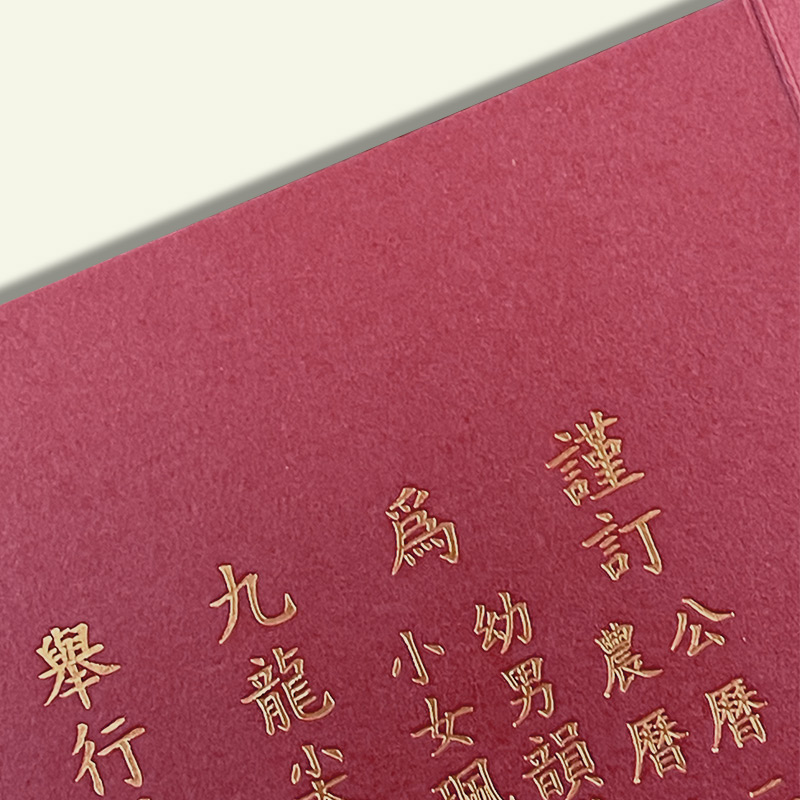 謹訂
公曆一
農曆
為
幼男韻
小女珮
九龍
舉行